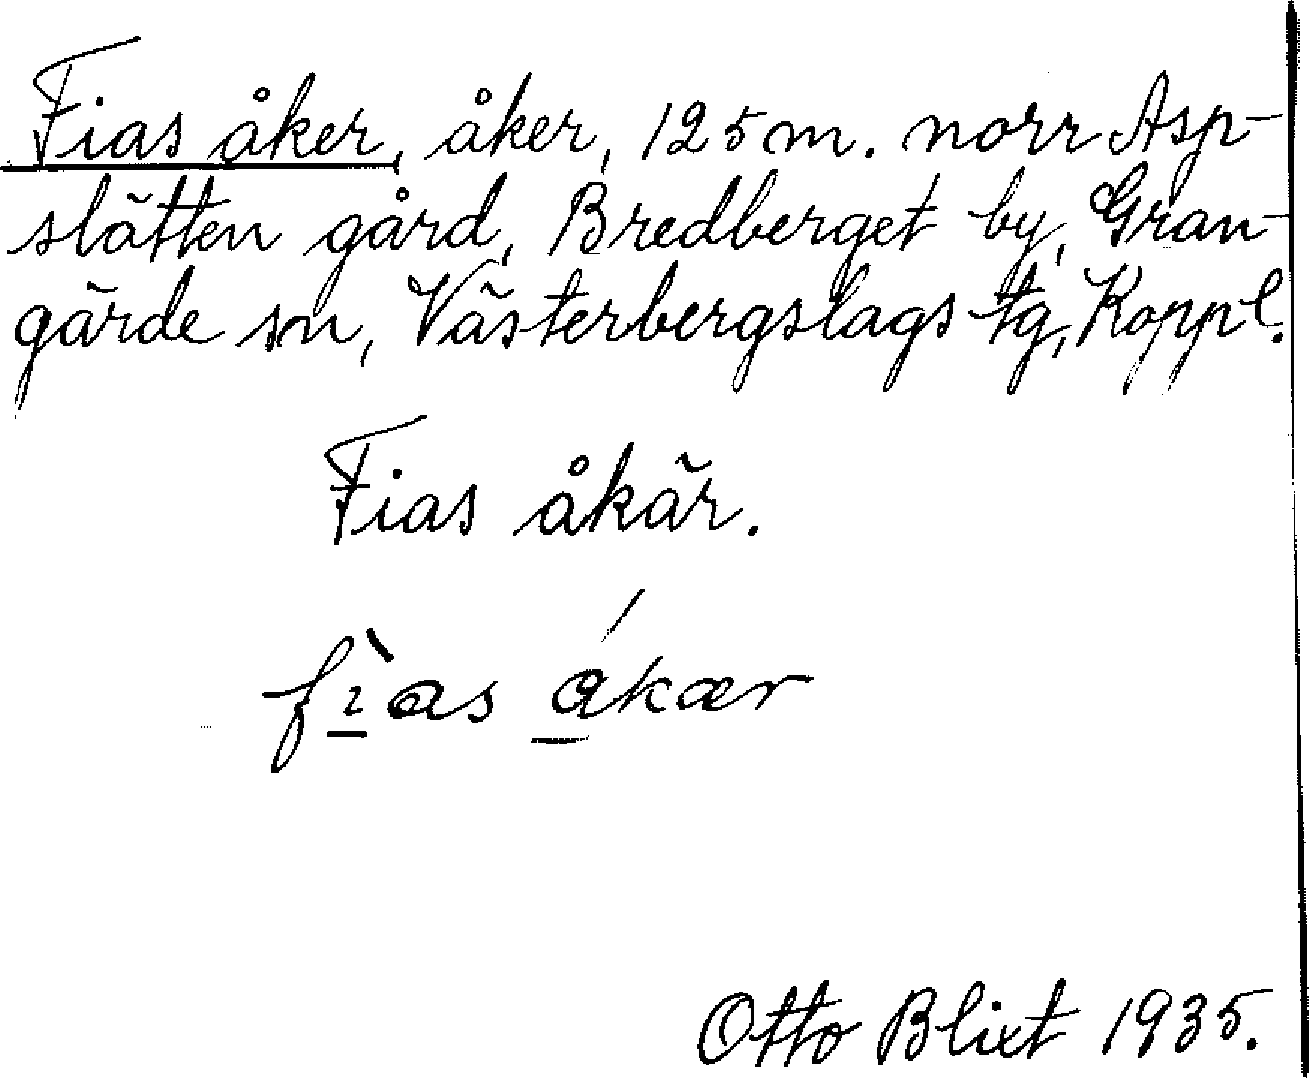 Fias åker, åker, 125 m. norr Asp-
slätten gård, Bredberget by, Gran-
gärde sn, Västerbergslags tg, Koppl.
Fias åkär.
fìas åkær
Otto Blixt 1935.